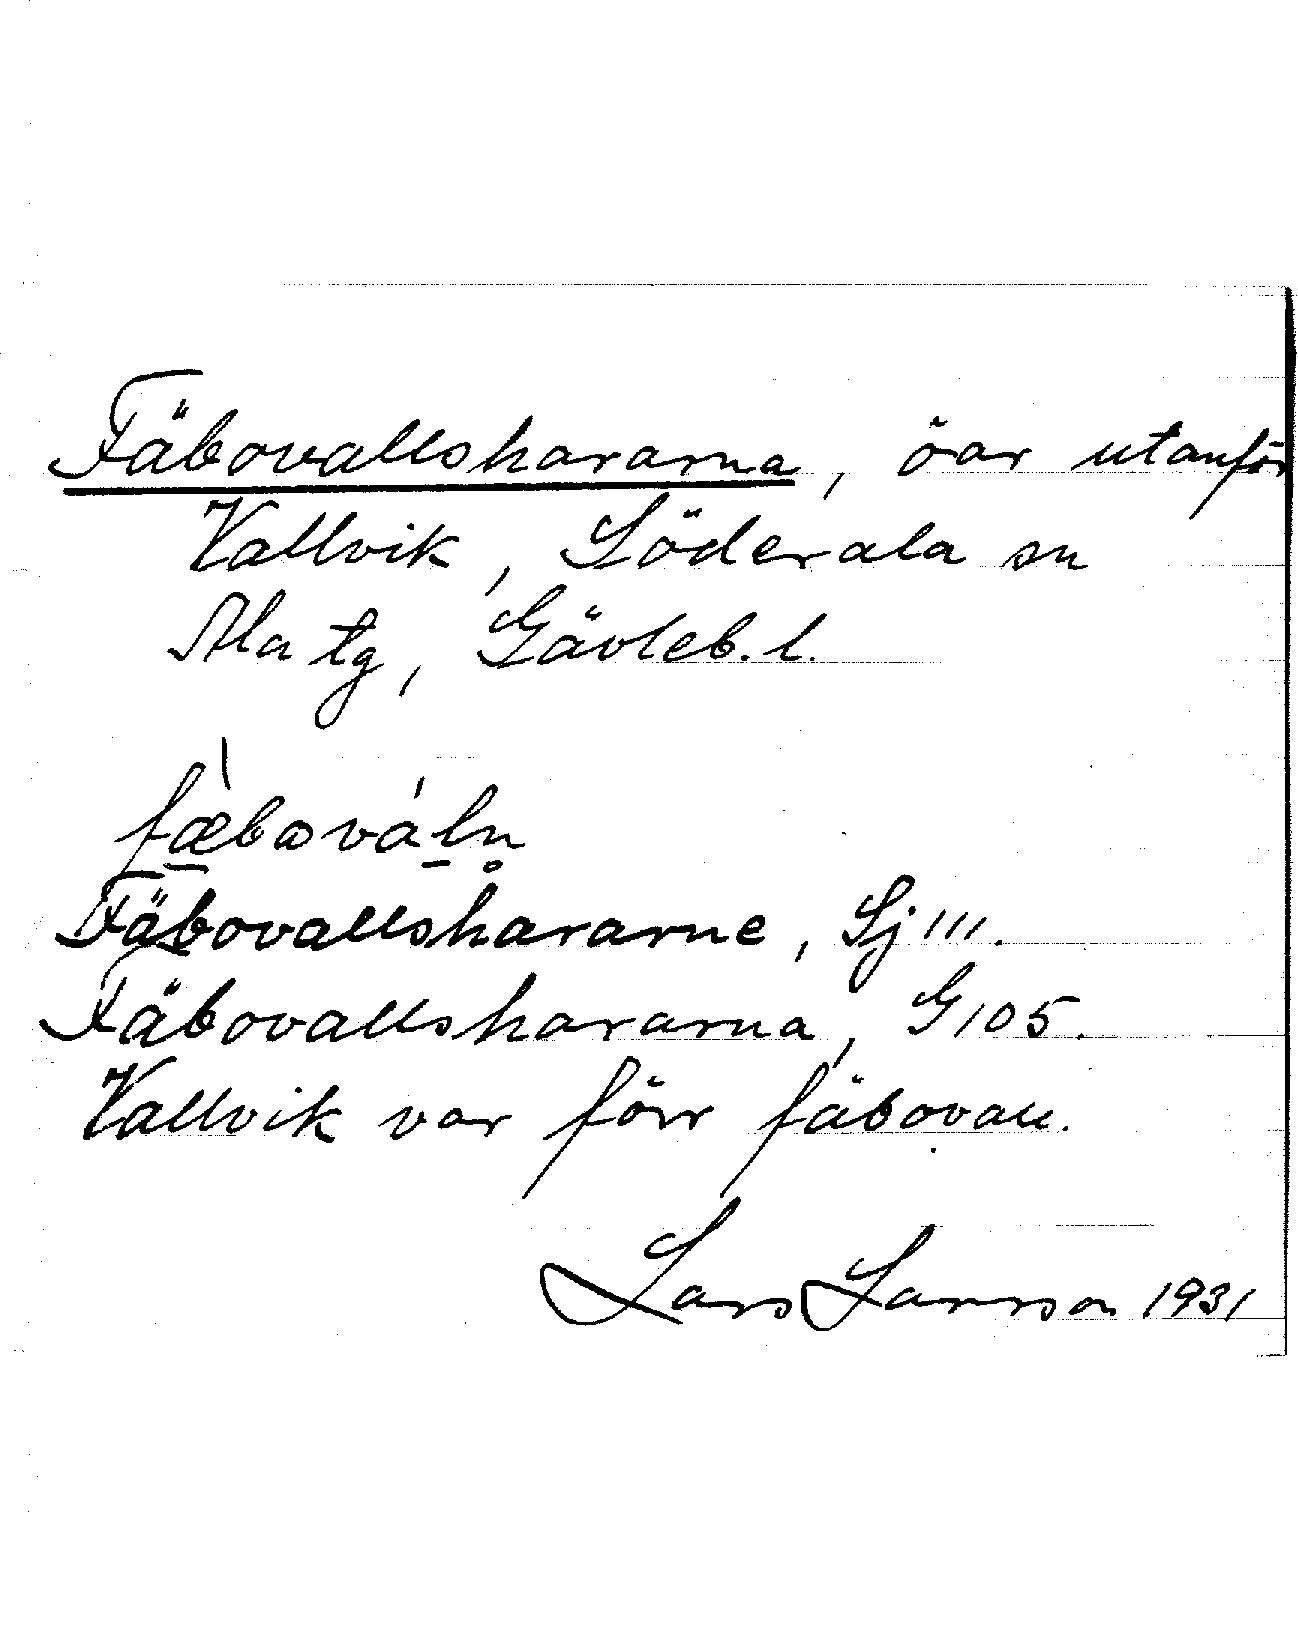 Fäbovallshararna, öar utanför
Vallvik, Söderala sn
Ala tg, Gävleb. l.
fæ̀bovál̲n̥
Fäbovallshararne, Sj 111.
Fäbovallshararna, G 105.
Vallvik var förr fäbovall.
Lars Larsson 1931